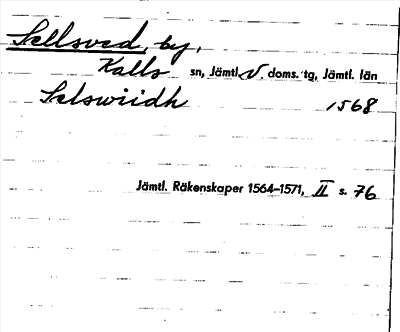 Sellsved, by,
Kalls sn, Jämtl. V. doms. tg, Jämtl. län
Selswiidh 1568
Jämtl. Räkenskaper 1564–1571, II s. 76